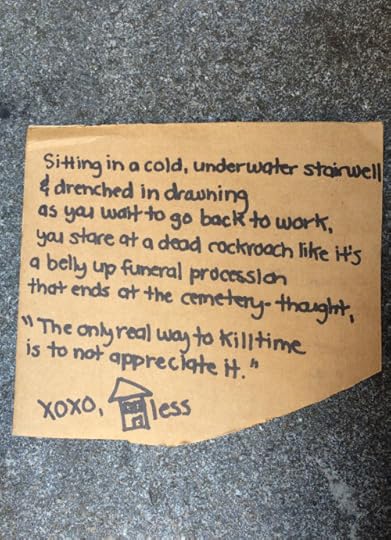 Sitting in a cold, underwater stairwell
& drenched in drawning
as you wait to go back to work,
you stare at a dead cockroach like it's
a belly up funeral procession
that ends at the cemetery-thought,
"The only real way to kill time
is to not appreciate it."
xoxo, less